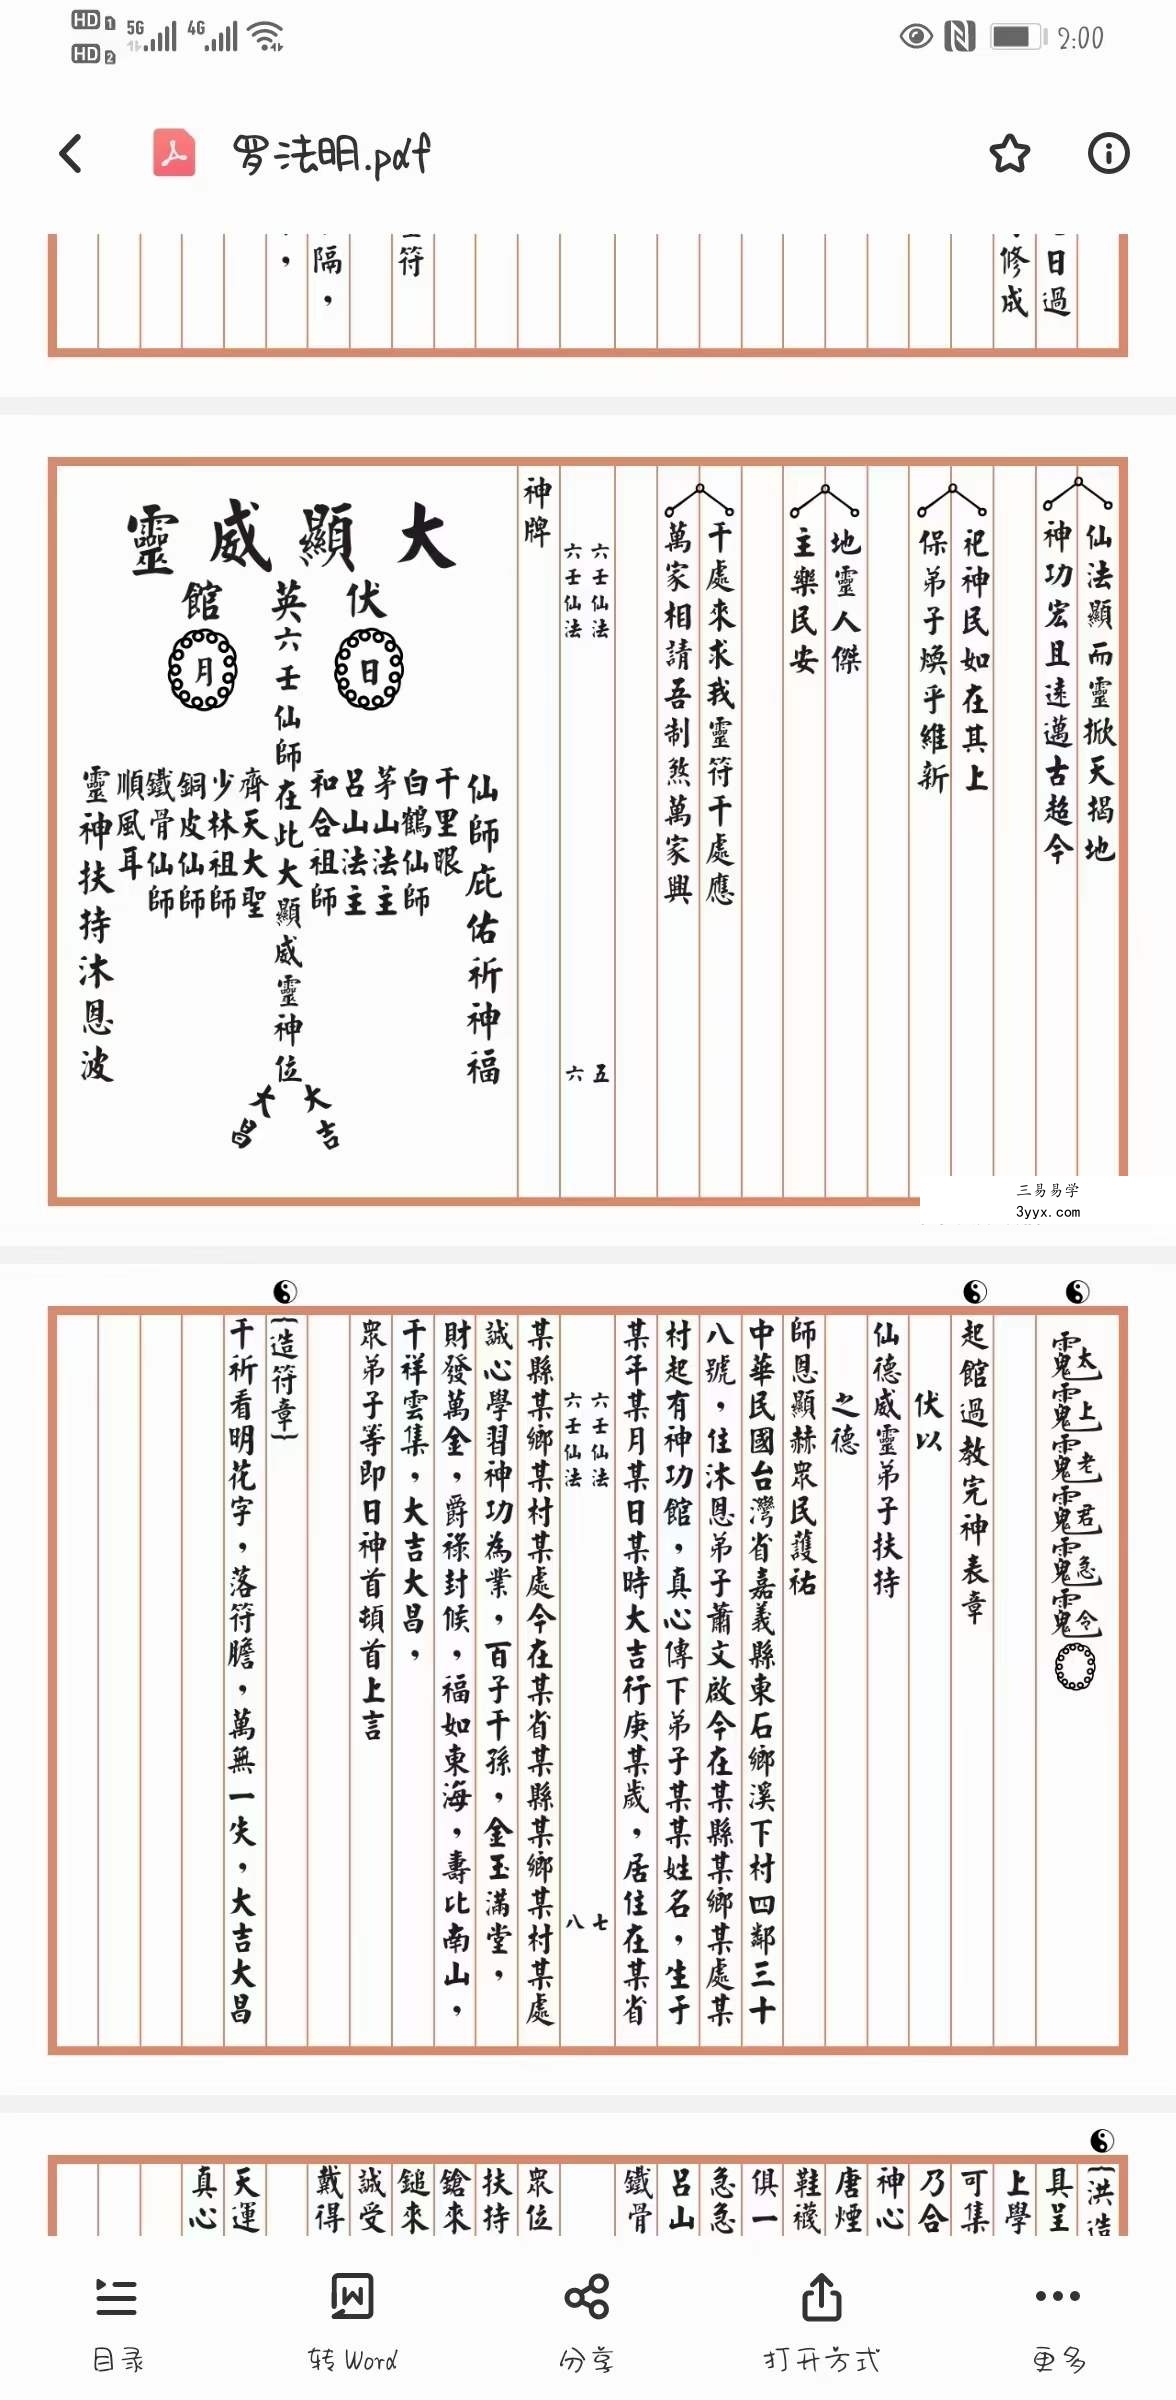 HD 1 5G 4G
HD 2
2:00
罗法明.pdf
日過
修成
符
隔，
，
仙法顯而靈掀天揭地
神功宏且遠邁古超今
祀神民如在其上
保弟子煥乎維新
地靈人傑
主樂民安
千處來求我靈符千處應
萬家相請吾制煞萬家興
六壬仙法 五
六壬仙法 六
神牌
大顯威靈
伏英館
日
月
仙師庇佑祈神福
千里眼
白鶴仙師
茅山法主
呂山法主
和合祖師
六壬仙師在此大顯威靈神位
齊天大聖
少林祖師
銅皮仙師
鐵骨仙師
順風耳
靈神扶持沐恩波
大吉
大昌
三易易学
3yyx.com
太上老君急令
起館過教完神表章
伏以
仙德威靈弟子扶持
之德
師恩顯赫眾民護祐
中華民國台灣省嘉義縣東石鄉溪下村四鄰三十
八號，住沐恩弟子蕭文啟今在某縣某鄉某處某
村起有神功館，真心傳下弟子某某姓名，生于
某年某月某日某時大吉行庚某歲，居住在某省
六壬仙法 七
六壬仙法 八
某縣某鄉某村某處今在某省某縣某鄉某村某處
誠心學習神功為業，百子千孫，金玉滿堂，
財發萬金，爵祿封候，福如東海，壽比南山，
千祥雲集，大吉大昌，
眾弟子等即日神首頓首上言
{造符章}
千祈看明花字，落符膽，萬無一失，大吉大昌
{洪造
具呈
上學
可集
乃合
神心
唐煙
鞋襪
俱一
急急
呂山
鐵骨
眾位
扶持
鎗來
鎚來
誠受
戴得
天運
真心
目录
转Word
分享
打开方式
更多